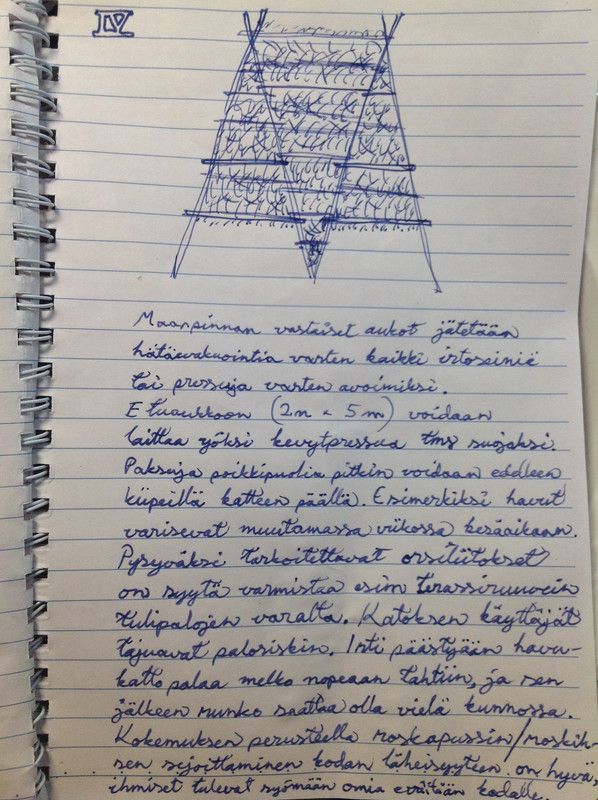 IV
Maanpinnan vastaiset aukot jätetään
hätäevakuointia vasten kaikki irtoseiniä
tai pressuja vasten avoimiksi.
Etuaukkoon (2m × 5m) voidaan
laittaa yöksi kevytpressua tms suojaksi.
Paksuja poikkipuolia pitkin voidaan edelleen
kiipeillä katteen päällä. Esimerkiksi havut
varisevat muutamassa viikossa kesäaikaan.
Pysyväksi tarkoitettavat orsiliitokset
on syytä varmistaa esim terassiruuvein
tulipalojen varalta. Katoksen käyttäjät
tajuavat paloriskin. Irti päästyään havu-
katto palaa melko nopeaan tahtiin, ja sen
jälkeen runko saattaa olla vielä kunnossa.
Kokemuksen perusteella roskapussin/roskih-
sen sijoittaminen kodan läheisyyteen on hyvä,
ihmiset tulevat syömään omia eväitään kodalle.